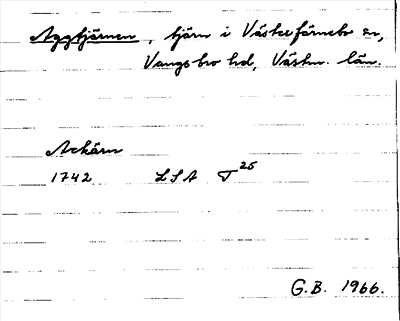 Aggtjärnen, tjärn i Västerfärnebo sn,
Vangsbro hd, Västm. län.
Ackärn
1742 LSA T 25
G.B. 1966.